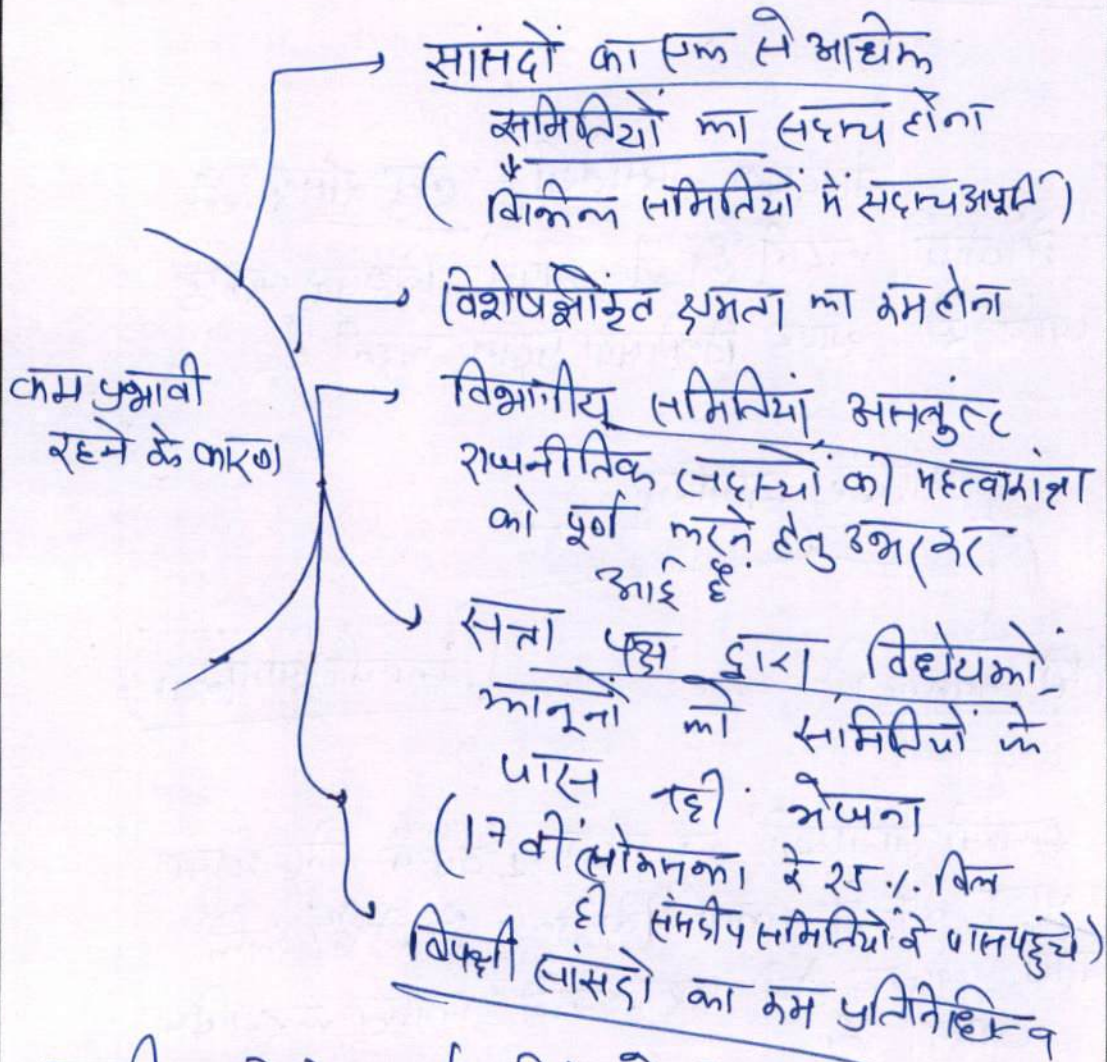 सांसदों का एक से अधिक
समितियों का सदस्य होना
( विभिन्न समितियों में सदस्य अपूर्ति )
विशेषज्ञीकृत क्षमता का कम होना
कम प्रभावी
रहने के कारण
विभागीय समितियां असन्तुष्ट
राजनीतिक सदस्यों की महत्वाकांक्षा
को पूर्ण करने हेतु उभरकर
आई हैं
सत्ता पक्ष द्वारा विधेयकों-
कानूनों को समितियों के
पास नहीं भेजना
(17 वीं लोकसभा के 25 % बिल
ही संसदीय समितियों के पास पहुंचे)
विपक्षी सांसदों का कम प्रतिनिधित्व